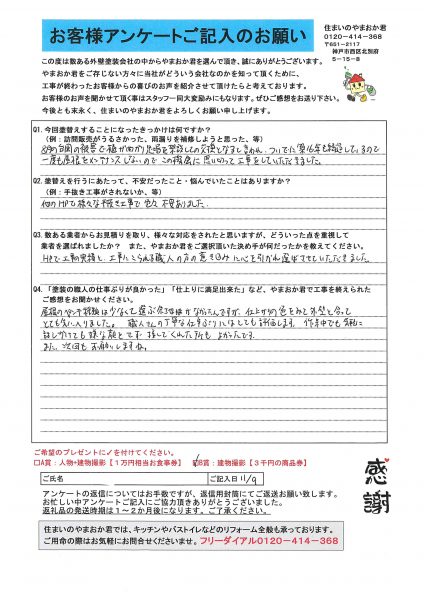 お客様アンケートご記入のお願い
住まいのやまおか君
0120-414-368
〒651-2117
神戸市西区北別府
5-15-8
この度は数ある外壁塗装会社の中からやまおか君を選んで頂き、誠にありがとうございます。
やまおか君をご存じない方々に当社がどういう会社なのかを知って頂くために、
工事が終わったお客様からの喜びのお声を紹介させて頂けたらと考えております。
お客様のお声を聞かせて頂く事はスタッフ一同大変励みにもなります。ぜひご感想をお送り下さい。
今後とも末永く、やまおか君をよろしくお願い申し上げます。
Q1. 今回塗替えすることになったきっかけは何ですか?
(例：訪問販売がうるさかった、雨漏りを補修しようと思った、等)
一度も屋根をメンテナンスしないので この機会に思い切って工事をしていただきました。
Q2. 塗替えを行うにあたって、不安だったこと・悩んでいたことはありますか?
(例：手抜き工事がされないか、等)
他のHPで様々な手抜き工事で 色々不安ありました。
Q3. 数ある業者からお見積りを取り、様々な対応をされたと思いますが、どういった点を重視して
業者を選ばれましたか? また、やまおか君をご選択頂いた決め手が何だったかを教えてください。
HPで工事の実績と、工事にこられる職人の方の意気込みに心を引かれ選ばさせていただきました。
Q4. 「塗装の職人の仕事ぶりが良かった」「仕上りに満足出来た」など、やまおか君で工事を終えられた
ご感想をお聞かせください。
とても気に入りました。 職人さんの丁寧な仕事ぶりにはとても評価します。 作業中でも気軽に
話しかけても嫌な顔とせず 接してくれた所も よかったです。
また、次回もお願いしますね。
ご希望のプレゼントに✓を付けてください。
□A賞：人物+建物撮影【1万円相当お食事券】 ☑B賞：建物撮影【3千円の商品券】
ご氏名 ご記入日 11/9
アンケートの返信についてはお手数ですが、返信用封筒にてご返送お願い致します。
お忙しい中アンケートご記入にご協力頂きありがとうございました。
返礼品の発送時期は1～2か月後になります。ご了承ください。
感謝
住まいのやまおか君では、キッチンやバストイレなどのリフォーム全般も承っております。
ご用命の際はお気軽にお問合せくださいませ。フリーダイアル0120-414-368